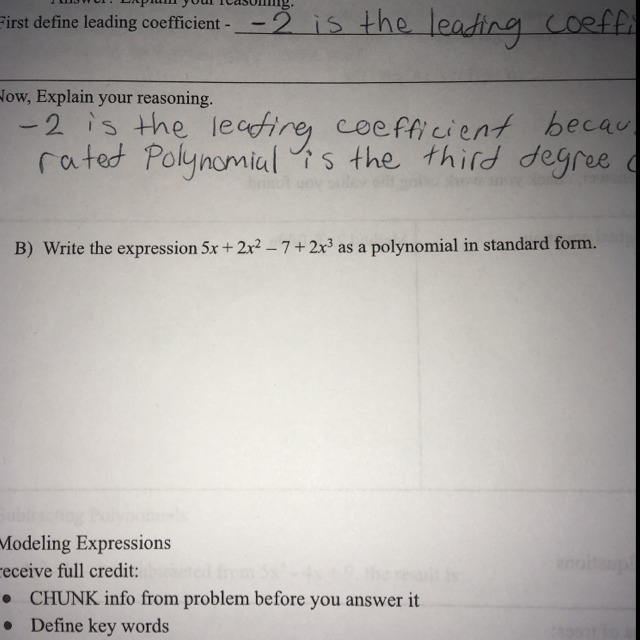 Answer? Explain your reasoning.
First define leading coefficient - -2 is the leading coeffi
Now, Explain your reasoning.
-2 is the leading coefficient becau
rated Polynomial is the third degree
B) Write the expression 5x + 2x² – 7 + 2x³ as a polynomial in standard form.
Subtracting Polynomials
Modeling Expressions
receive full credit:
• CHUNK info from problem before you answer it
• Define key words